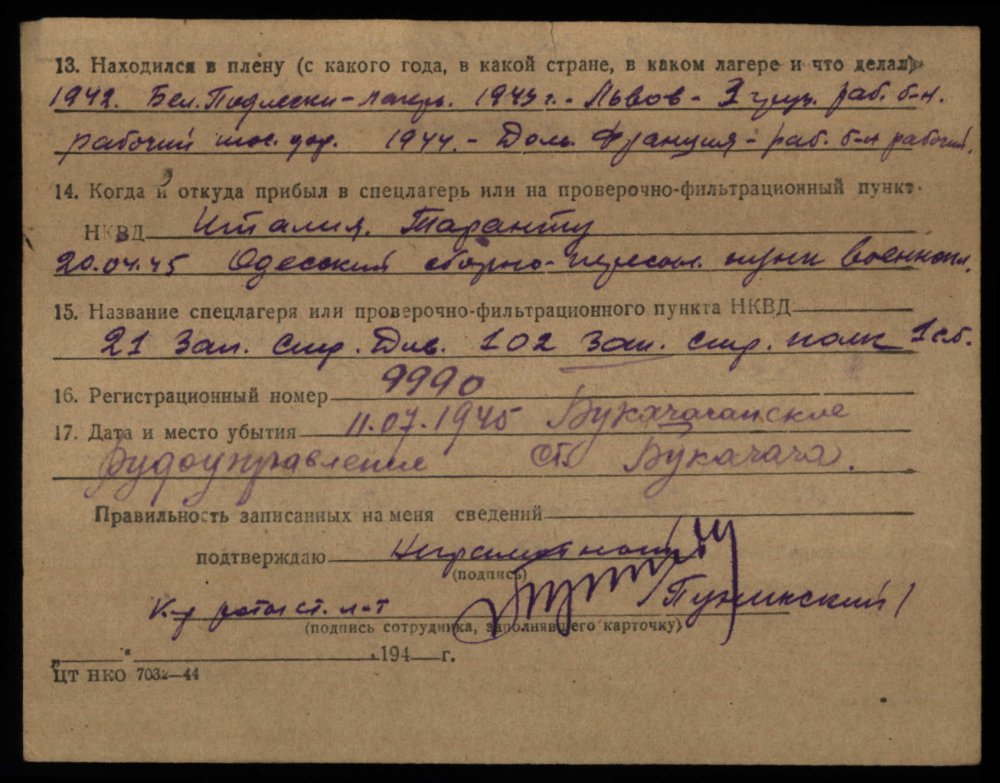 13. Находился в плену (с какого года, в какой стране, в каком лагере и что делал)
1942. Бел. Подлески-лагерь. 1943 г. - Львов - раб. б-н.
рабочий шос. дор. 1944. - Доль Франция - раб. б-н рабочий.
14. Когда и откуда прибыл в спецлагерь или на проверочно-фильтрационный пункт
НКВД Италия. Таранту
20.04.45 Одесский сборно-пересыл. пункт военнопл.
15. Название спецлагеря или проверочно-фильтрационного пункта НКВД
21 Зап. Стр. Див. 102 Зап. Стр. полк 1 сб.
16. Регистрационный номер 9990
17. Дата и место убытия 11.07.1945 Букачачанское
рудоуправление ст. Букачача.
Правильность записанных на меня сведений
подтверждаю Неграмотный
(подпись)
К-р роты ст. л-т /Пунинский/
(подпись сотрудника, заполнявшего карточку)
„ " 194 г.
ЦТ НКО 7032—44